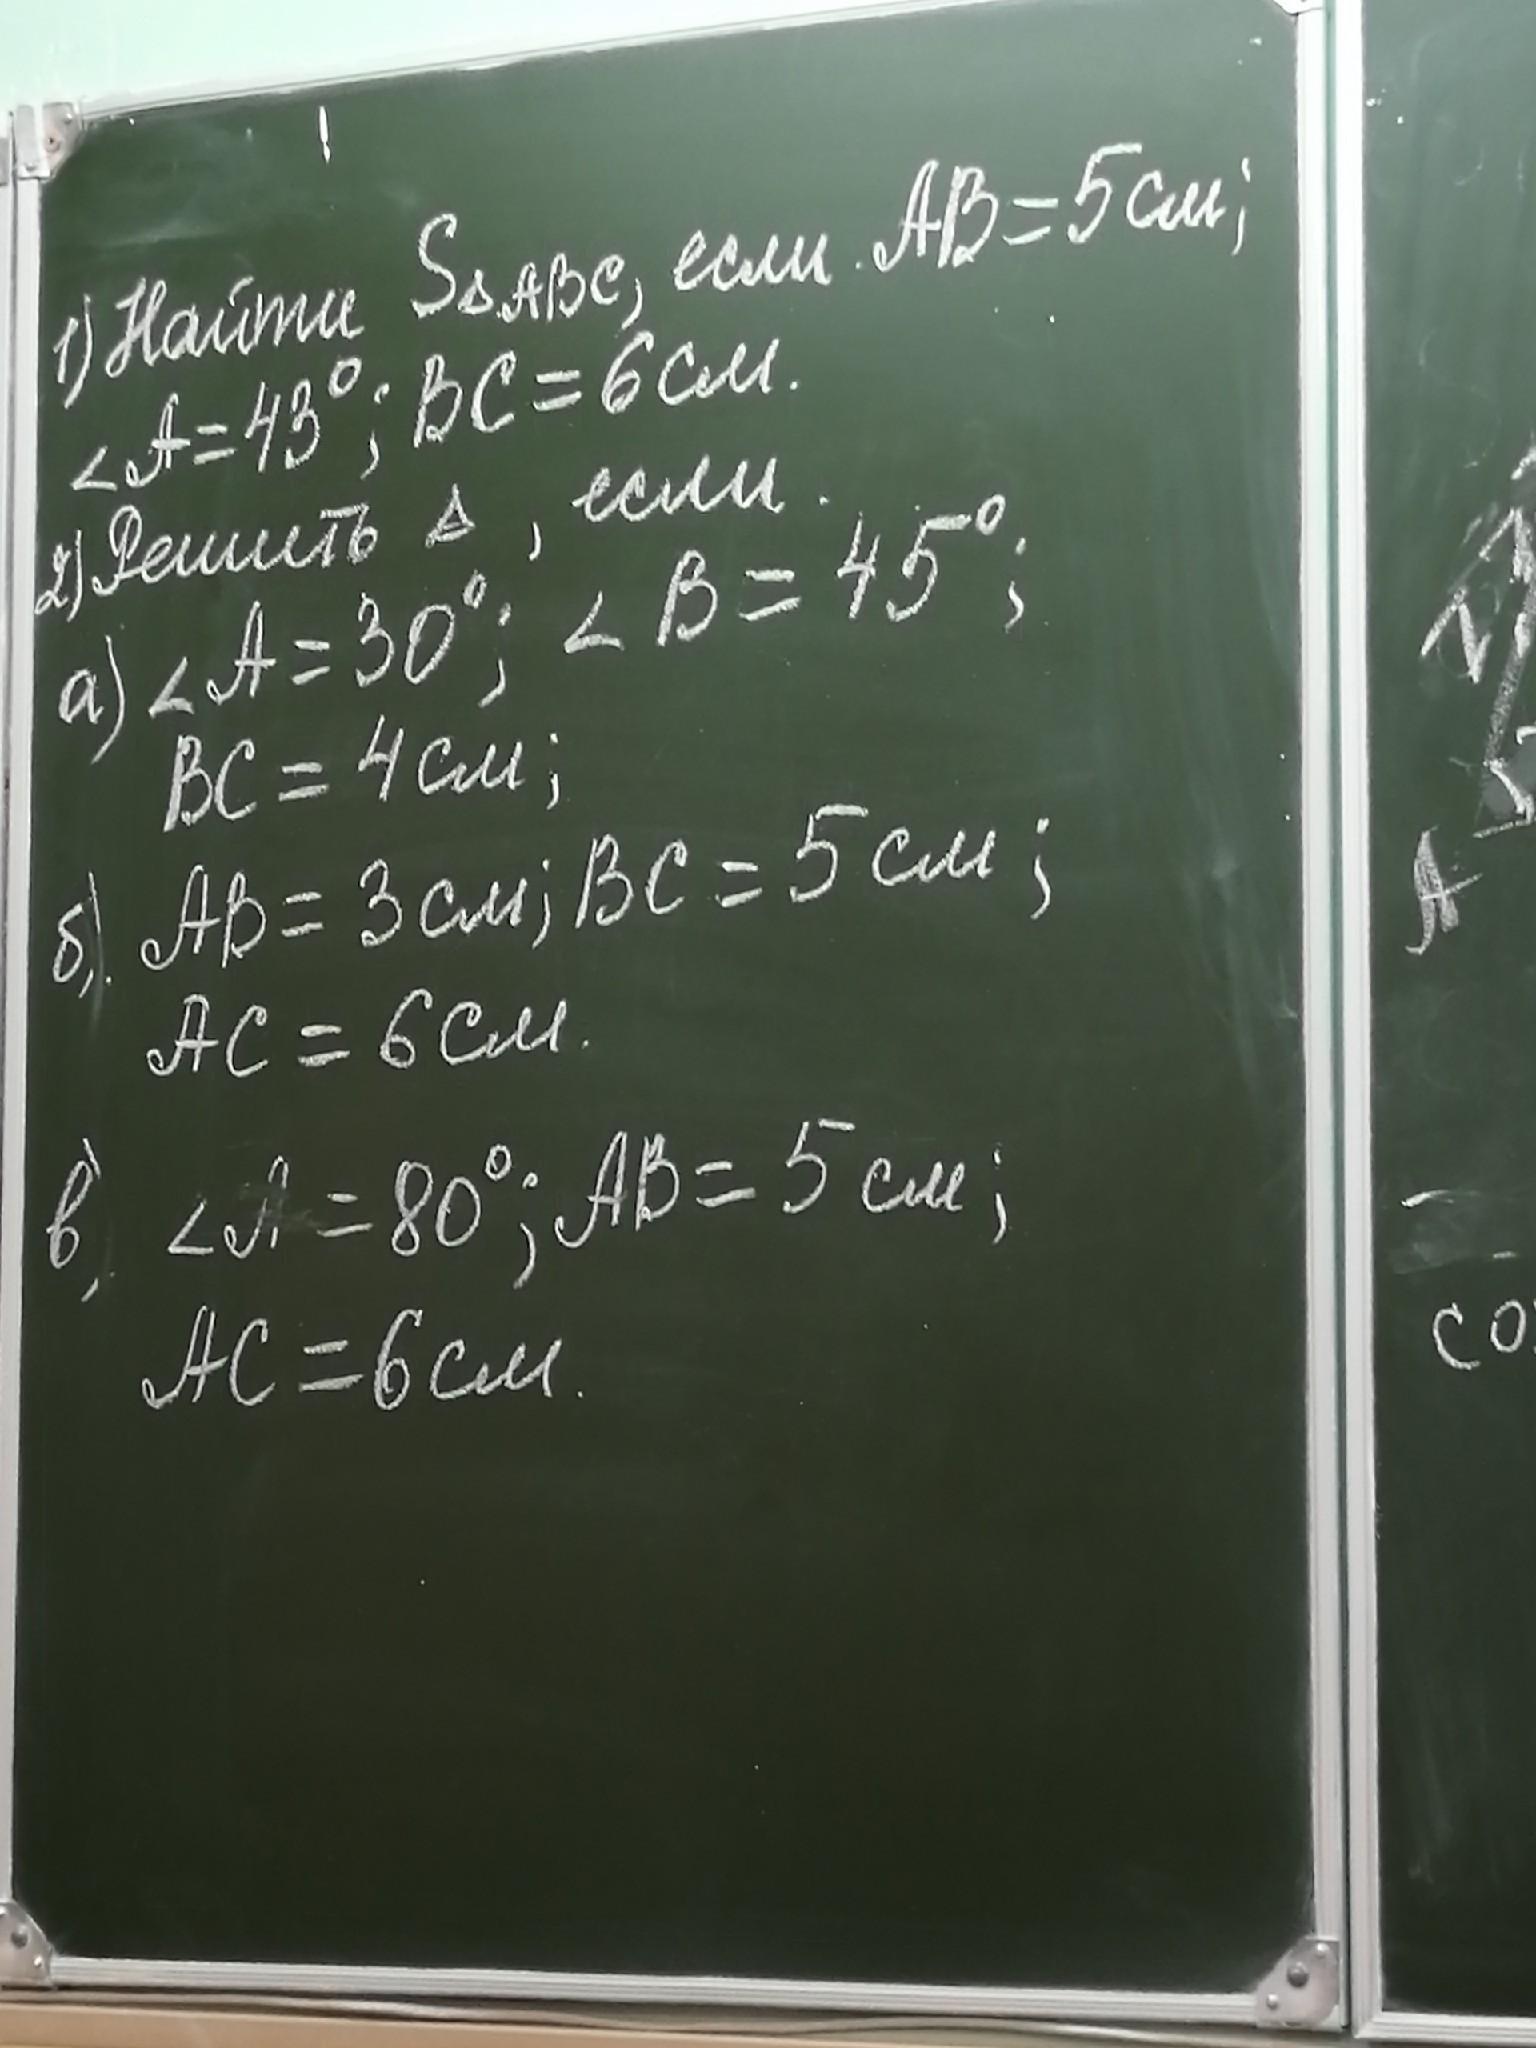 1) Найти S△ABC, если AB = 5 см;
∠A = 43°; BC = 6 см.
2) Решить △, если
а) ∠A = 30°; ∠B = 45°;
BC = 4 см;
б) AB = 3 см; BC = 5 см;
AC = 6 см.
в) ∠A = 80°; AB = 5 см;
AC = 6 см.
A